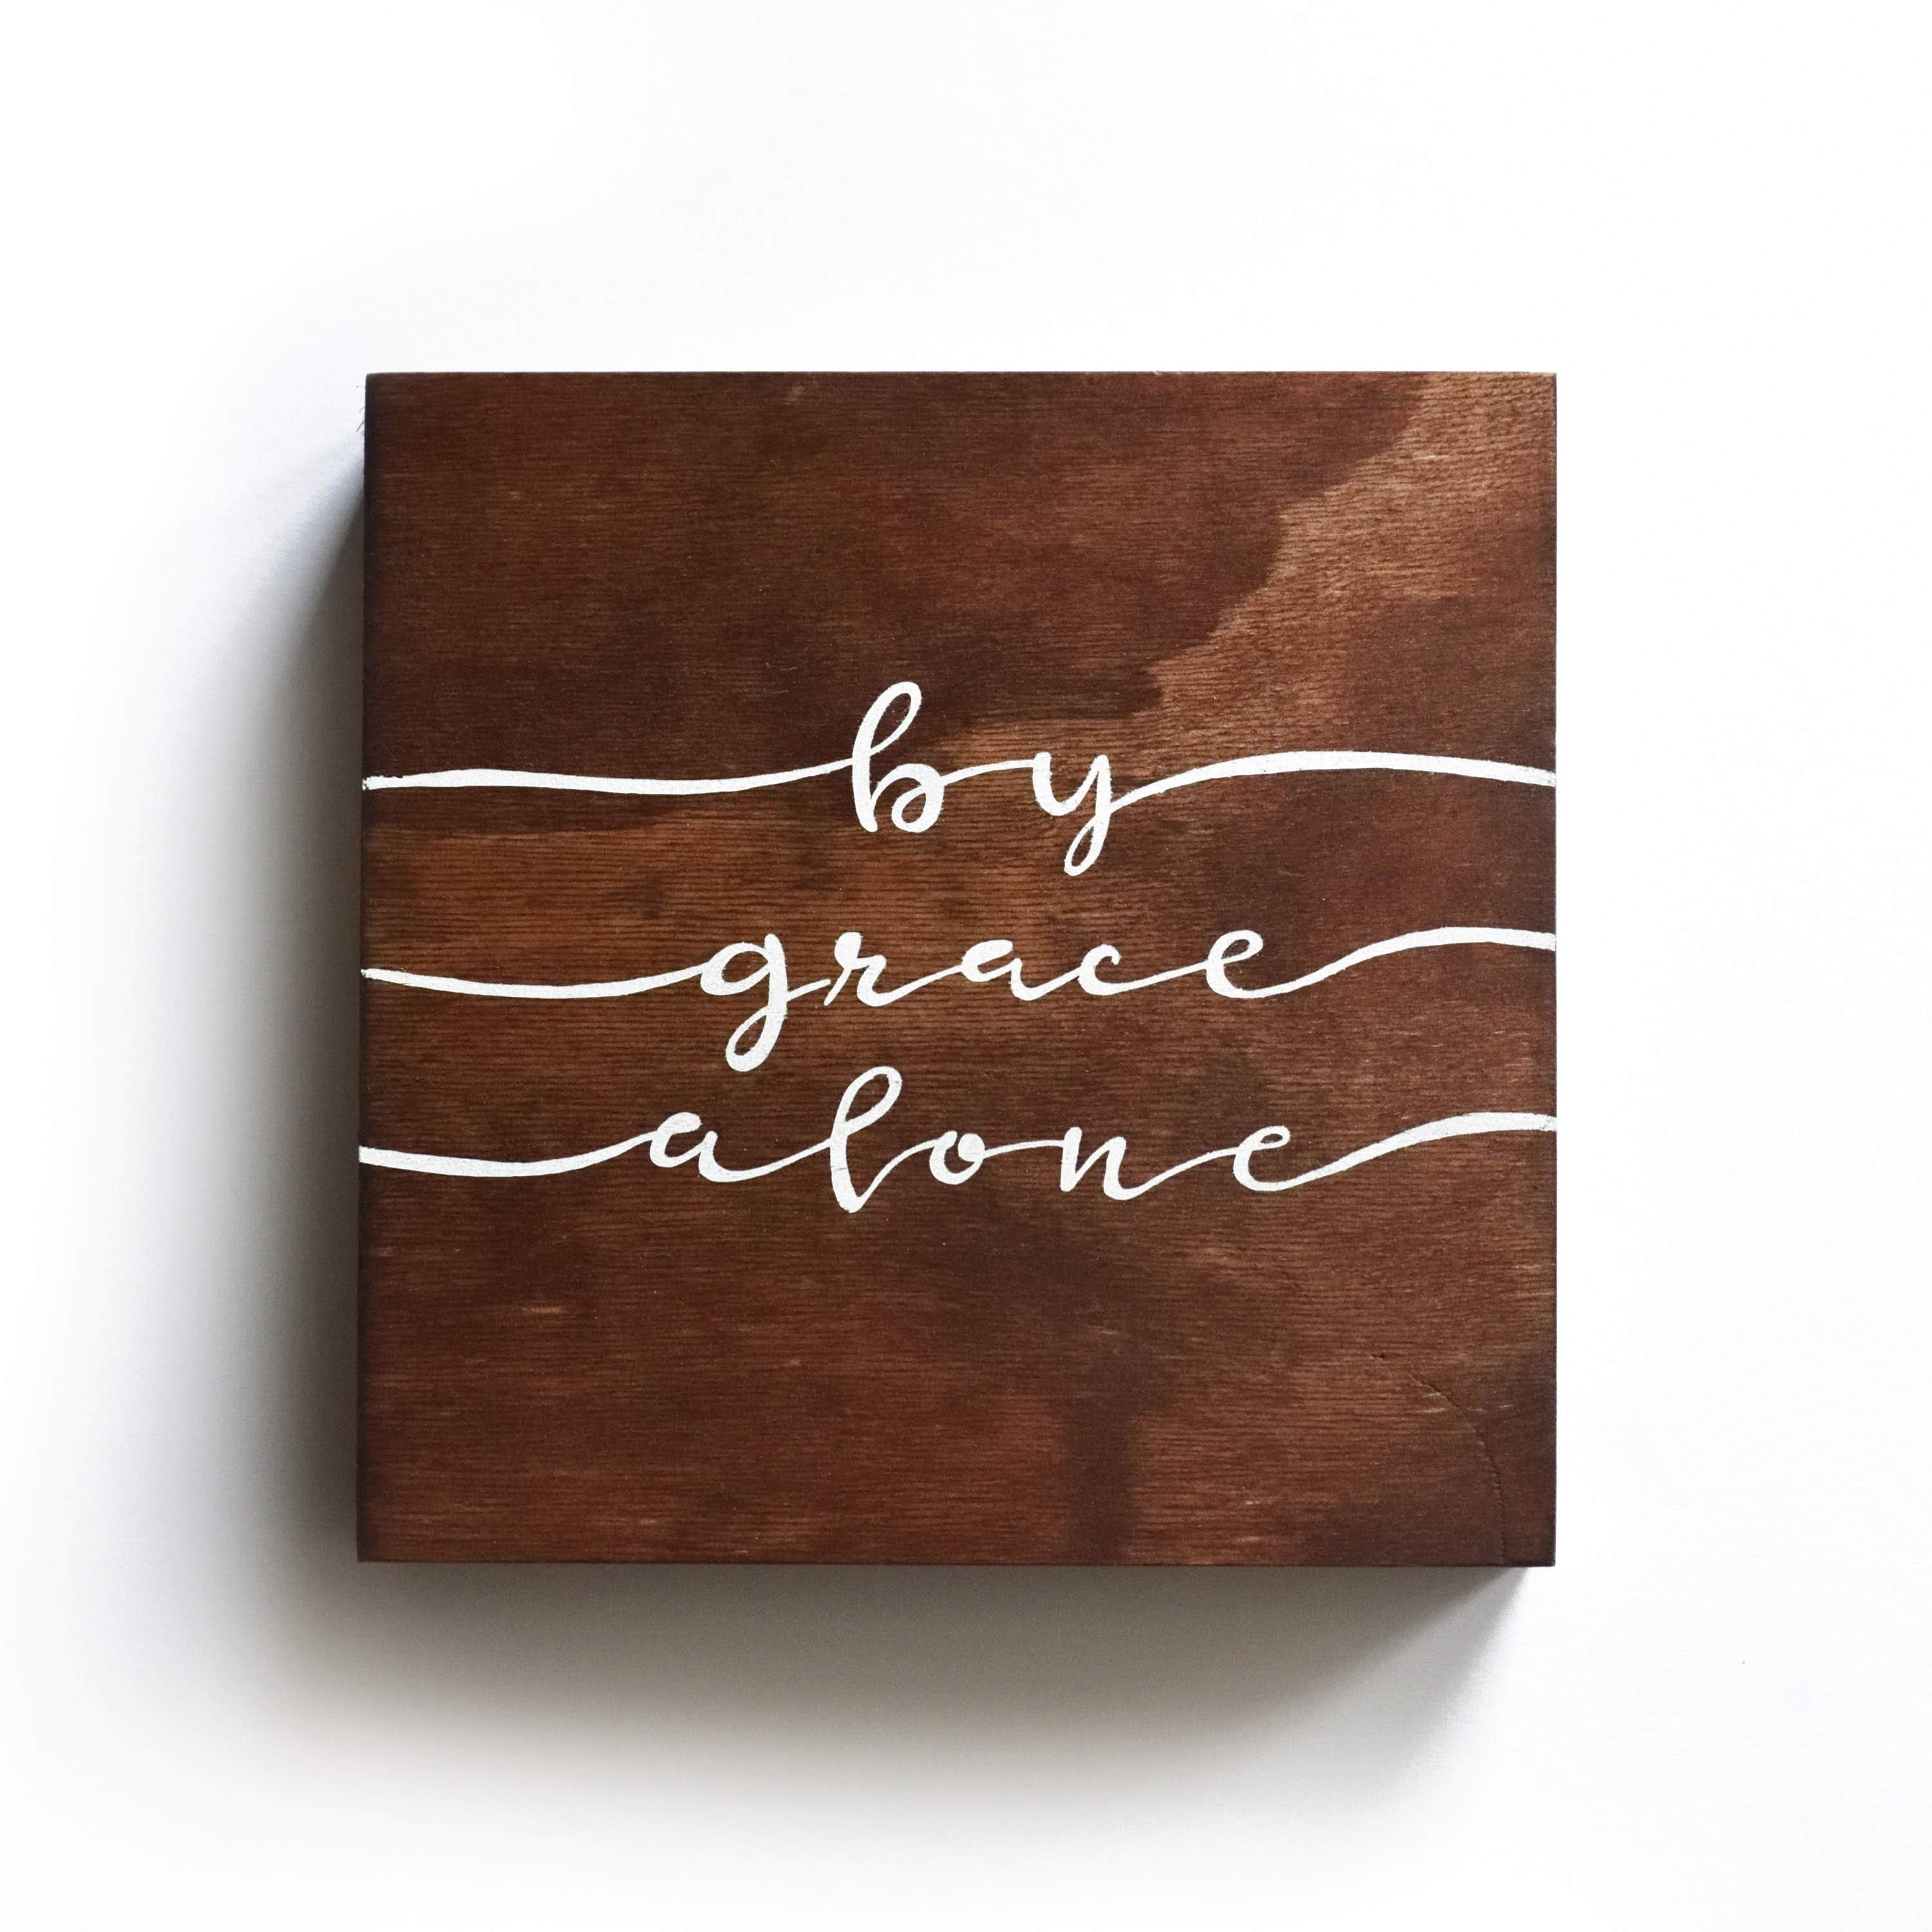 by
grace
alone